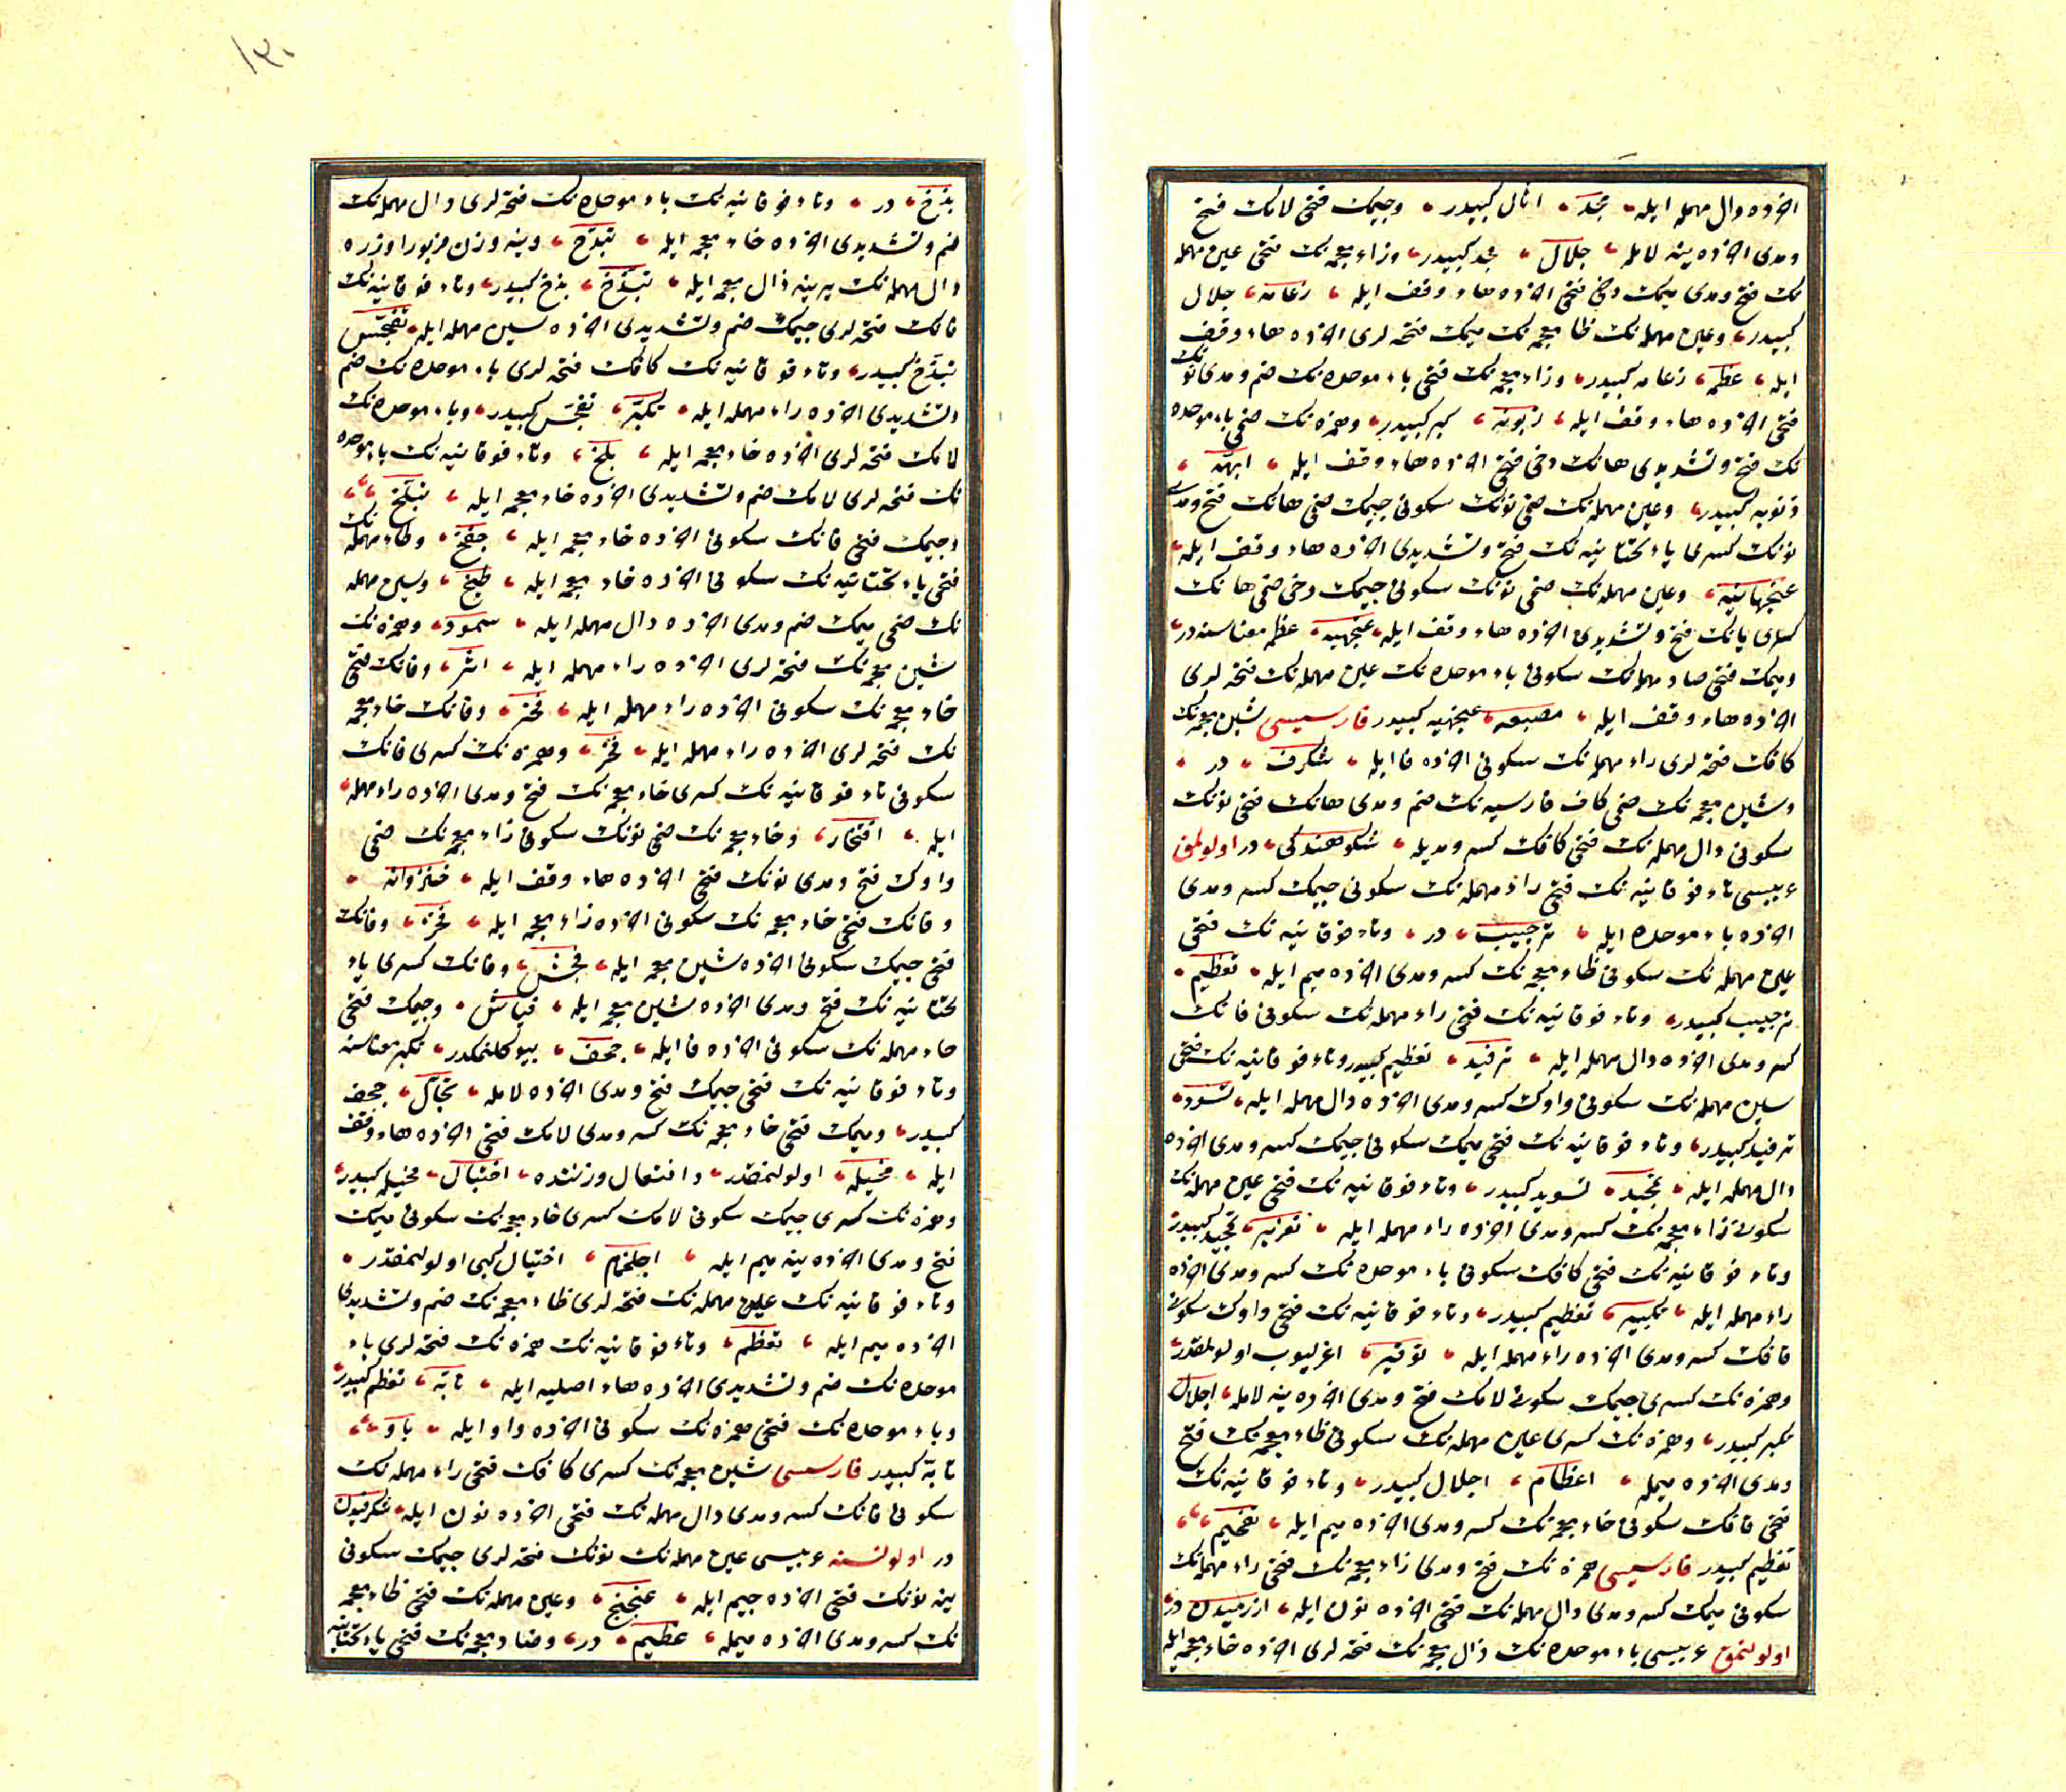 اخرده دال مهمله ایله مجد اثال كبیدر وجیمك فتحی لامك فتح
ومدی اخرده ینه لامله جلال مجد كبیدر وزاء معجمه نك فتحی عین مهمله
نك فتح ومدی میمك دخی فتحی اخرده هاء وقف ایله زعامه جلال
كبیدر وعین مهمله نك ظا معجمه نك میمك فتحه لری اخرده هاء وقف
ایله عظمه زعامه كبیدر وزاء معجمه نك فتحی باء موحده نك ضم ومدی نونك
فتحی اخرده هاء وقف ایله زبونه كبر كبیدر وهمزه نك ضمی باء موحده
نك فتح وتشدیدی هانك دخی فتحی اخرده هاء وقف ایله ابهه
زبونه كبیدر وعین مهمله نك ضمی نونك سكونی جیمك ضمی هانك فتح ومدی
نونك كسری یاء تحتانیه نك فتح وتشدیدی اخرده هاء وقف ایله
عنجهانیه وعین مهمله نك ضمی نونك سكونی جیمك دخی ضمی هانك
كسری یانك فتح وتشدیدی اخرده هاء وقف ایله عنجهیه عظم معناسنه در
ومیمك فتحی صاد مهمله نك سكونی باء موحده نك عین مهمله نك فتحه لری
اخرده هاء وقف ایله مصبعه عنجهیه كبیدر فارسیسی شین معجمه نك
كافك فتحه لری راء مهمله نك سكونی اخرده فا ایله شكرف در
وشین معجمه نك ضمی كاف فارسیه نك ضم ومدی هانك فتحی نونك
سكونی دال مهمله نك فتحی كافك كسر ومدیله شكوهندكی در اولولمق
عربیسی تاء فوقانیه نك فتحی راء مهمله نك سكونی جیمك كسر ومدی
اخرده باء موحده ایله ترجیب در وتاء فوقانیه نك فتحی
عین مهمله نك سكونی ظاء معجمه نك كسر ومدی اخرده میم ایله تعظیم
ترجیب كبیدر وتاء فوقانیه نك فتحی راء مهمله نك سكونی فانك
كسر ومدی اخرده دال مهمله ایله ترفید تعظیم كبیدر وتاء فوقانیه نك فتحی
سین مهمله نك سكونی واوك كسر ومدی اخرده دال مهمله ایله تسوید
ترفید كبیدر وتاء فوقانیه نك فتحی میمك سكونی جیمك كسر ومدی اخرده
دال مهمله ایله تمجید تسوید كبیدر وتاء فوقانیه نك فتحی عین مهمله نك
سكونی زاء معجمه نك كسر ومدی اخرده راء مهمله ایله تعزیر تمجید كبیدر
وتاء فوقانیه نك فتحی كافك سكونی باء موحده نك كسر ومدی اخرده
راء مهمله ایله تكبیر تعظیم كبیدر وتاء فوقانیه نك فتحی واوك سكونی
قافك كسر ومدی اخرده راء مهمله ایله توقیر اغرلیوب اولولمقدر
وهمزه نك كسری جیمك سكونی لامك فتح ومدی اخرده ینه لامله اجلال
تكبیر كبیدر وهمزه نك كسری عین مهمله نك سكونی ظاء معجمه نك فتح
ومدی اخرده میمله اعظام اجلال كبیدر وتاء فوقانیه نك
فتحی فانك سكونی خاء معجمه نك كسر ومدی اخرده میم ایله تفخیم
تعظیم كبیدر فارسیسی همزه نك فتح ومدی زاء معجمه نك فتحی راء مهمله نك
سكونی میمك كسر ومدی دال مهمله نك فتحی اخرده نون ایله ازرمیدن در
اولولنمق عربیسی باء موحده نك ذال معجمه نك فتحه لری اخرده خاء معجمه ایله
١٣٠
بذخ در وتاء فوقانیه نك باء موحده نك فتحه لری دال مهمله نك
ضم وتشدیدی اخرده خاء معجمه ایله تبدخ وینه وزن مزبور اوزره
دال مهمله نك یرینه ذال معجمه ایله تبذخ بذخ كبیدر وتاء فوقانیه نك
فانك فتحه لری جیمك ضم وتشدیدی اخرده سین مهمله ایله تفجس
تبذخ كبیدر وتاء فوقانیه نك كافك فتحه لری باء موحده نك ضم
وتشدیدی اخرده راء مهمله ایله تكبر تفجس كبیدر وباء موحده نك
لامك فتحه لری اخرده خاء معجمه ایله بلخ وتاء فوقانیه نك باء موحده
نك فتحه لری لامك ضم وتشدیدی اخرده خاء معجمه ایله تبلخ
وجیمك فتحی فانك سكونی اخرده خاء معجمه ایله جفخ وطاء مهمله نك
فتحی یاء تحتانیه نك سكونی اخرده خاء معجمه ایله طیخ وسین مهمله
نك ضمی میمك ضم ومدی اخرده دال مهمله ایله سمود وهمزه نك
شین معجمه نك فتحه لری اخرده راء مهمله ایله اشر وفانك فتحی
خاء معجمه نك سكونی اخرده راء مهمله ایله فخر وفانك خاء معجمه
نك فتحه لری اخرده راء مهمله ایله فخر وهمزه نك كسری فانك
سكونی تاء فوقانیه نك كسری خاء معجمه نك فتح ومدی اخرده راء مهمله
ایله افتخار وخاء معجمه نك ضمی نونك سكونی زاء معجمه نك ضمی
واوك فتح ومدی نونك فتحی اخرده هاء وقف ایله خنزوانه
وفانك فتحی خاء معجمه نك سكونی اخرده زاء معجمه ایله فخز وفانك
فتحی جیمك سكونی اخرده شین معجمه ایله فجش وفانك كسری یاء
تحتانیه نك فتح ومدی اخرده شین معجمه ایله فیاش وجیمك فتحی
حاء مهمله نك سكونی اخرده فا ایله جحف بیوكلنمكدر تكبر معناسنه
وتاء فوقانیه نك فتحی جیمك فتح ومدی اخرده لامله تجال جحف
كبیدر ومیمك فتحی خاء معجمه نك كسر ومدی لامك فتحی اخرده هاء وقف
ایله مخیله اولولنمقدر وافتعال وزننده اختیال مخیله كبیدر
وهمزه نك كسری جیمك سكونی لامك كسری خاء معجمه نك سكونی میمك
فتح ومدی اخرده ینه میم ایله اجلخمام اختیال كبی اولولنمقدر
وتاء فوقانیه نك عین مهمله نك فتحه لری ظاء معجمه نك ضم وتشدیدی
اخرده میم ایله تعظم وتاء فوقانیه نك همزه نك فتحه لری باء
موحده نك ضم وتشدیدی اخرده هاء اصلیه ایله تابه تعظم كبیدر
وباء موحده نك فتحی همزه نك سكونی اخرده واو ایله باو
تابه كبیدر فارسیسی شین معجمه نك كسری كافك فتحی راء مهمله نك
سكونی فانك كسر ومدی دال مهمله نك فتحی اخرده نون ایله شكرفیدن
در اولولنسنه عربیسی عین مهمله نك نونك فتحه لری جیمك سكونی
ینه نونك فتحی اخرده جیم ایله عنجنج وعین مهمله نك فتحی ظاء معجمه
نك كسر ومدی اخرده میمله عظیم در وضاد معجمه نك فتحی یاء تحتانیه